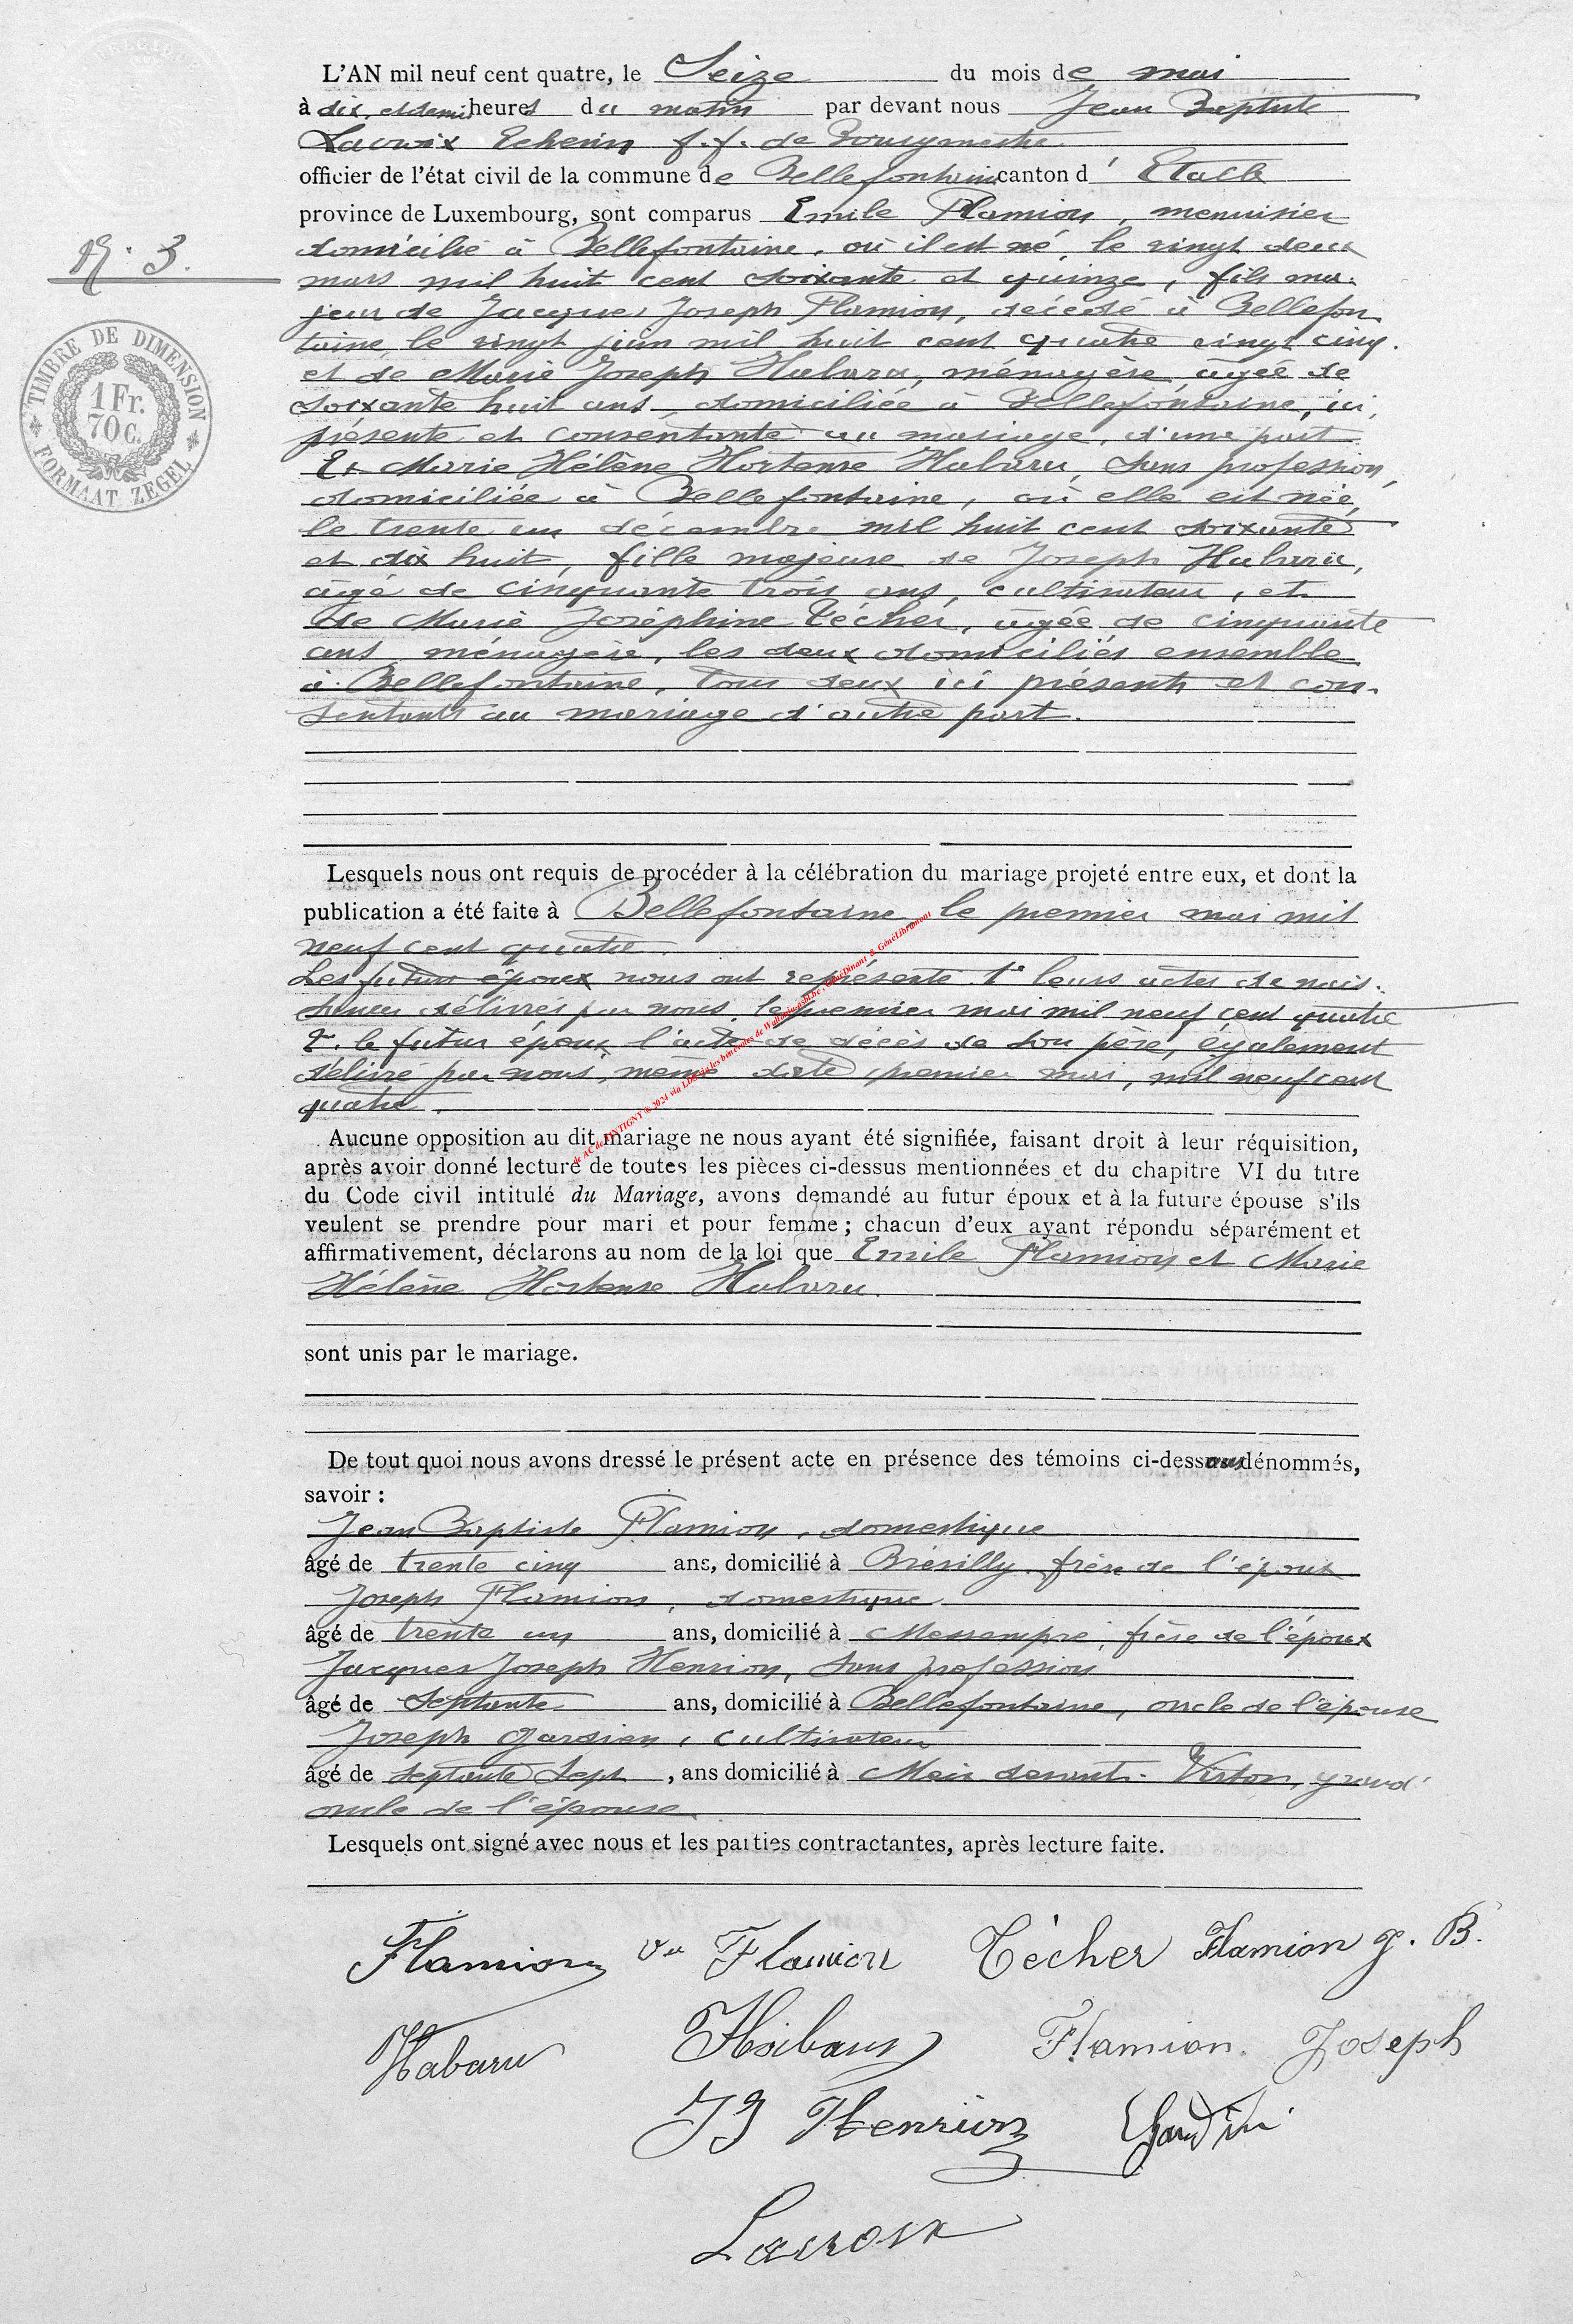 L'AN mil neuf cent quatre, le Seize du mois de mai
à dix et demi heures du matin par devant nous Jean Baptiste
Lacroix Echevin f.f. de Bourgmestre
officier de l'état civil de la commune de Bellefontaine canton d'Etalle
province de Luxembourg, sont comparus Emile Flamion, menuisier
domicilié à Bellefontaine, où il est né, le vingt deux
N° 3.
mars mil huit cent soixante et quinze, fils ma-
jeur de Jacques Joseph Flamion, décédé à Bellefon
taine, le vingt juin mil huit cent quatre vingt cinq.
et de Marie Joseph Habaru, ménagère, âgée de
soixante huit ans, domiciliée à Bellefontaine, ici,
présente et consentante au mariage, d'une part.
Et Marie Hélène Hortense Habaru, sans profession,
domiciliée à Bellefontaine, où elle est née,
le trente un décembre mil huit cent soixante
et dix huit, fille majeure de Joseph Habaru,
âgé de cinquante trois ans, cultivateur, et
de Marie Joséphine Técher, âgée de cinquante
ans, ménagère, les deux domiciliés ensemble
à Bellefontaine, tous deux ici présents et con-
sentants au mariage d'autre part.
TIMBRE DE DIMENSION
1 Fr.
70 C.
FORMAAT ZEGEL
Lesquels nous ont requis de procéder à la célébration du mariage projeté entre eux, et dont la
publication a été faite à Bellefontaine, le premier mai mil
neuf cent quatre.
Les futurs époux nous ont représenté 1° leurs actes de nais-
sances délivrés par nous, le premier mai mil neuf cent quatre
2°. le futur époux l'acte de décès de son père, également
délivré par nous, même date, premier mai, mil neuf cent
quatre.
de AC de TINTIGNY © 2024 via LDS via les bénévoles de Wallonia-asbl.be - GénéDinant & GénéLibramont
Aucune opposition au dit mariage ne nous ayant été signifiée, faisant droit à leur réquisition,
après avoir donné lecture de toutes les pièces ci-dessus mentionnées et du chapitre VI du titre
du Code civil intitulé du Mariage, avons demandé au futur époux et à la future épouse s'ils
veulent se prendre pour mari et pour femme ; chacun d'eux ayant répondu séparément et
affirmativement, déclarons au nom de la loi que Emile Flamion et Marie
Hélène Hortense Habaru.
sont unis par le mariage.
De tout quoi nous avons dressé le présent acte en présence des témoins ci-dessous dénommés,
savoir :
Jean Baptiste Flamion, domestique
âgé de trente cinq ans, domicilié à Brévilly, frère de l'époux
Joseph Flamion, domestique
âgé de trente un ans, domicilié à Messempré, frère de l'époux
Jacques Joseph Henrion, sans profession
âgé de septante ans, domicilié à Bellefontaine, oncle de l'épouse
Joseph Gardien, cultivateur
âgé de septante sept, ans domicilié à Meix devant-Virton, grand'
oncle de l'épouse.
Lesquels ont signé avec nous et les parties contractantes, après lecture faite.
Flamion Ve Flamion Técher Flamion J. B.
Habaru Habaru Flamion. Joseph
JJ Henrion
Lacroix